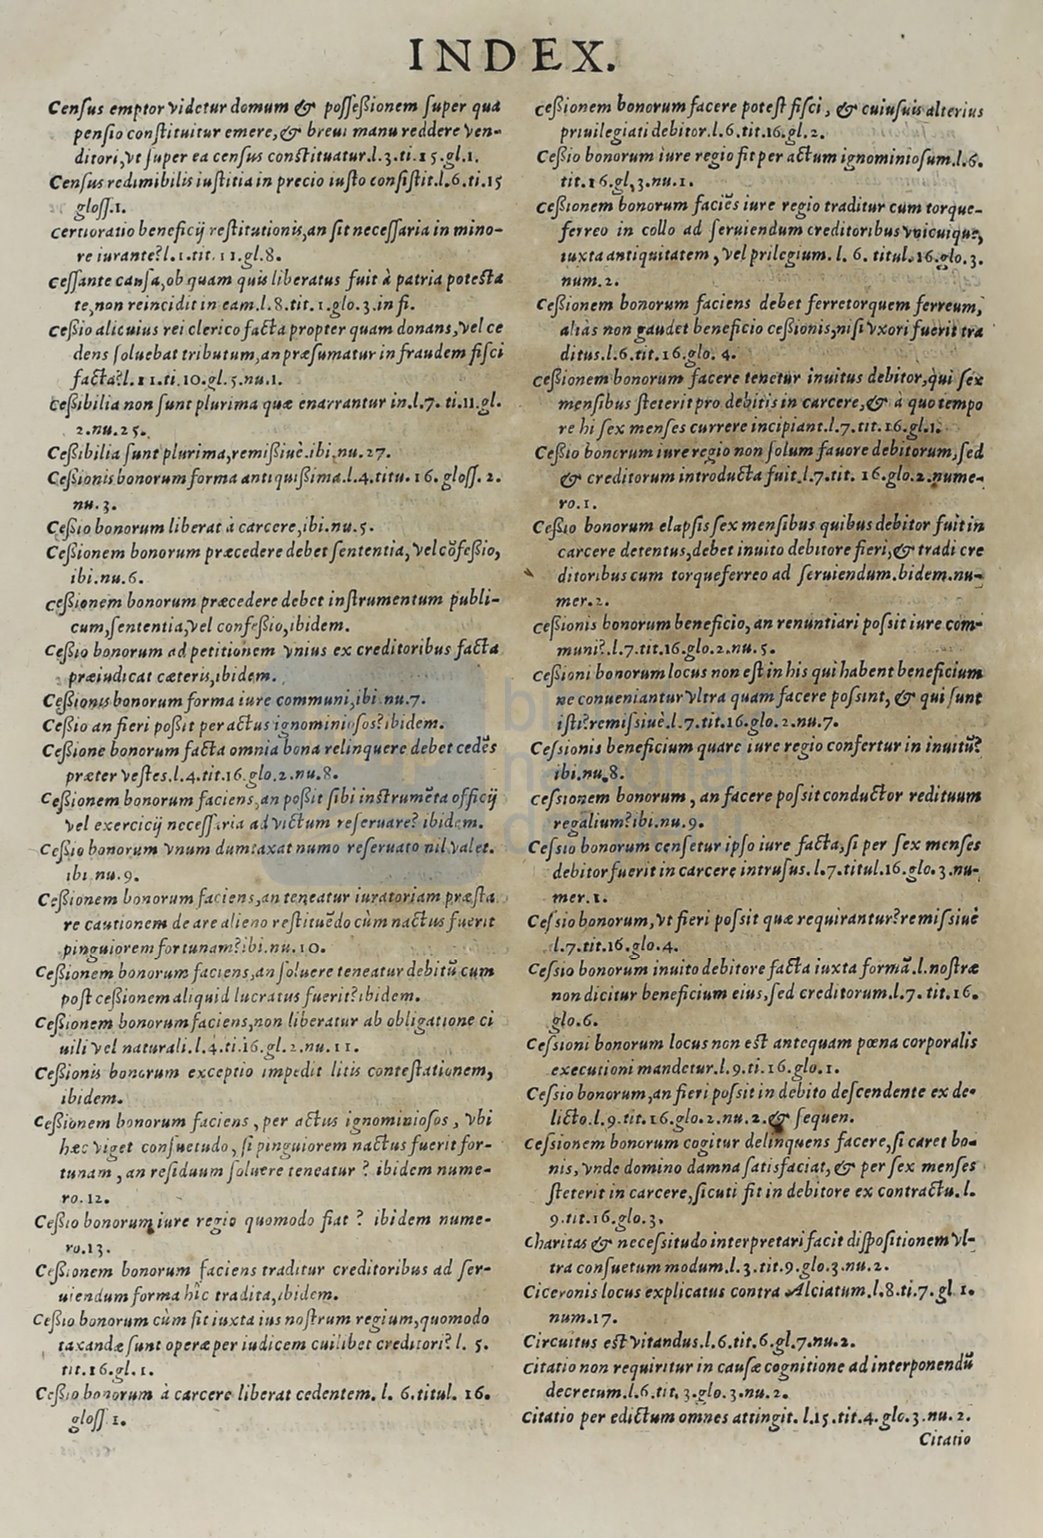 INDEX.
Cenſus emptor videtur domum & poſſeßionem ſuper qua
penſio conſtituitur emere, & breui manu reddere ven-
ditori, vt ſuper ea cenſus conſtituatur.l.3.ti.15.gl.1.
Cenſus redimibilis iuſtitia in precio iuſto conſiſtit.l.6.ti.15
gloſſ.1.
certioratio beneficij reſtitutionis, an ſit neceſſaria in mino-
re iurante?l.1.tit.11.gl.8.
ceſſante cauſa, ob quam quis liberatus fuit à patria poteſta
te, non reincidit in eam.l.8.tit.1.glo.3.in fi.
ceßio alicuius rei clerico facta propter quam donans, vel ce
dens ſoluebat tributum, an præſumatur in fraudem fiſci
facta?l.11.ti.10.gl.5.nu.1.
ceßibilia non ſunt plurima quæ enarrantur in.l.7.ti.11.gl.
2.nu.25.
Ceßibilia ſunt plurima, remißiuè.ibi.nu.27.
Ceßionis bonorum forma antiquißima.l.4.titu.16.gloſſ.2.
nu.3.
Ceßio bonorum liberat à carcere, ibi.nu.5.
Ceßionem bonorum præcedere debet ſententia, vel cõfeßio,
ibi.nu.6.
ceßionem bonorum præcedere debet inſtrumentum publi-
cum, ſententia, vel confeßio, ibidem.
Ceßio bonorum ad petitionem vnius ex creditoribus facta
præiudicat cæteris, ibidem.
Ceßionis bonorum forma iure communi, ibi.nu.7.
Ceßio an fieri poßit per actus ignominioſos?ibidem.
Ceßione bonorum facta omnia bona relinquere debet cedẽs
præter veſtes.l.4.tit.16.glo.2.nu.8.
Ceßionem bonorum faciens, an poßit ſibi inſtrumẽta officij
vel exercicij neceſſaria ad victum reſeruare? ibidem.
Ceßio bonorum vnum dumtaxat numo reſeruato nil valet.
ibi nu.9.
Ceßionem bonorum faciens, an teneatur iuratoriam præſta
re cautionem de ære alieno reſtituẽdo cùm nactus fuerit
pinguiorem fortunam?ibi.nu.10.
Ceßionem bonorum faciens, an ſoluere teneatur debitũ cum
poſt ceßionem aliquid lucratus fuerit?ibidem.
Ceßionem bonorum faciens, non liberatur ab obligatione ci
uili vel naturali.l.4.ti.16.gl.2.nu.11.
Ceßionis bonorum exceptio impedit litis conteſtationem,
ibidem.
Ceßionem bonorum faciens, per actus ignominioſos, vbi
hæc viget conſuetudo, ſi pinguiorem nactus fuerit for-
tunam, an reſiduum ſoluere teneatur ? ibidem nume-
ro.12.
Ceßio bonorum iure regio quomodo fiat ? ibidem nume-
ro.13.
Ceßionem bonorum faciens traditur creditoribus ad ſer-
uiendum forma hîc tradita, ibidem.
Ceßio bonorum cùm ſit iuxta ius noſtrum regium, quomodo
taxandæ ſunt operæ per iudicem cuilibet creditori? l. 5.
tit.16.gl.1.
Ceßio bonorum à carcere liberat cedentem. l. 6.titul. 16.
gloſſ 1.
ceßionem bonorum facere poteſt fiſci, & cuiuſuis alterius
priuilegiati debitor.l.6.tit.16.gl.2.
Ceßio bonorum iure regio fit per actum ignominioſum.l.6.
tit.16.gl.3.nu.1.
ceßionem bonorum faciẽs iure regio traditur cum torque-
ferreo in collo ad ſeruiendum creditoribus vnicuique,
iuxta antiquitatem, vel prilegium. l. 6. titul.16.glo.3.
num.2.
Ceßionem bonorum faciens debet ferre torquem ferreum,
aliàs non gaudet beneficio ceßionis, niſi vxori fuerit tra
ditus.l.6.tit.16.glo.4.
ceßionem bonorum facere tenetur inuitus debitor, qui ſex
menſibus ſteterit pro debitis in carcere, & à quo tempo
re hi ſex menſes currere incipiant.l.7.tit.16.gl.1.
Ceßio bonorum iure regio non ſolum fauore debitorum, ſed
& creditorum introducta fuit.l.7.tit. 16.glo.2.nume-
ro.1.
Ceßio bonorum elapſis ſex menſibus quibus debitor fuit in
carcere detentus, debet inuito debitore fieri, & tradi cre
ditoribus cum torqueferreo ad ſeruiendum.bidem.nu-
mer.2.
ceßionis bonorum beneficio, an renuntiari poſsit iure com-
muni?.l.7.tit.16.glo.2.nu.5.
ceßioni bonorum locus non eſt in his qui habent beneficium
ne conueniantur vltra quam facere poſsint, & qui ſunt
iſti?remiſsiuè.l.7.tit.16.glo.2.nu.7.
Ceſsionis beneficium quare iure regio confertur in inuitũ?
ibi.nu.8.
ceſsionem bonorum, an facere poſsit conductor redituum
regalium?ibi.nu.9.
Ceſsio bonorum cenſetur ipſo iure facta, ſi per ſex menſes
debitor fuerit in carcere intruſus.l.7.titul.16.glo.3.nu-
mer.1.
Ceſsio bonorum, vt fieri poſsit quæ requirantur?remiſsiuè
.l.7.tit.16.glo.4.
Ceſsio bonorum inuito debitore facta iuxta formã.l.noſtræ
non dicitur beneficium eius, ſed creditorum.l.7.tit.16.
glo.6.
Ceſsioni bonorum locus non eſt antequam pœna corporalis
executioni mandetur.l.9.ti.16.glo.1.
Ceſsio bonorum, an fieri poſsit in debito deſcendente ex de-
licto.l.9.tit.16.glo.2.nu.2.& ſequen.
Ceſsionem bonorum cogitur delinquens facere, ſi caret bo-
nis, vnde domino damna ſatisfaciat, & per ſex menſes
ſteterit in carcere, ſicuti fit in debitore ex contractu.l.
9.tit.16.glo.3.
Charitas & neceſsitudo interpretari facit diſpoſitionem vl-
tra conſuetum modum.l.3.tit.9.glo.3.nu.2.
Ciceronis locus explicatus contra Alciatum.l.8.ti.7.gl 1.
num.17.
Circuitus eſt vitandus.l.6.tit.6.gl.7.nu.2.
citatio non requiritur in cauſæ cognitione ad interponendũ
decretum.l.6.tit.3.glo.3.nu.2.
Citatio per edictum omnes attingit. l.15.tit.4.glo.3.nu.2.
Citatio